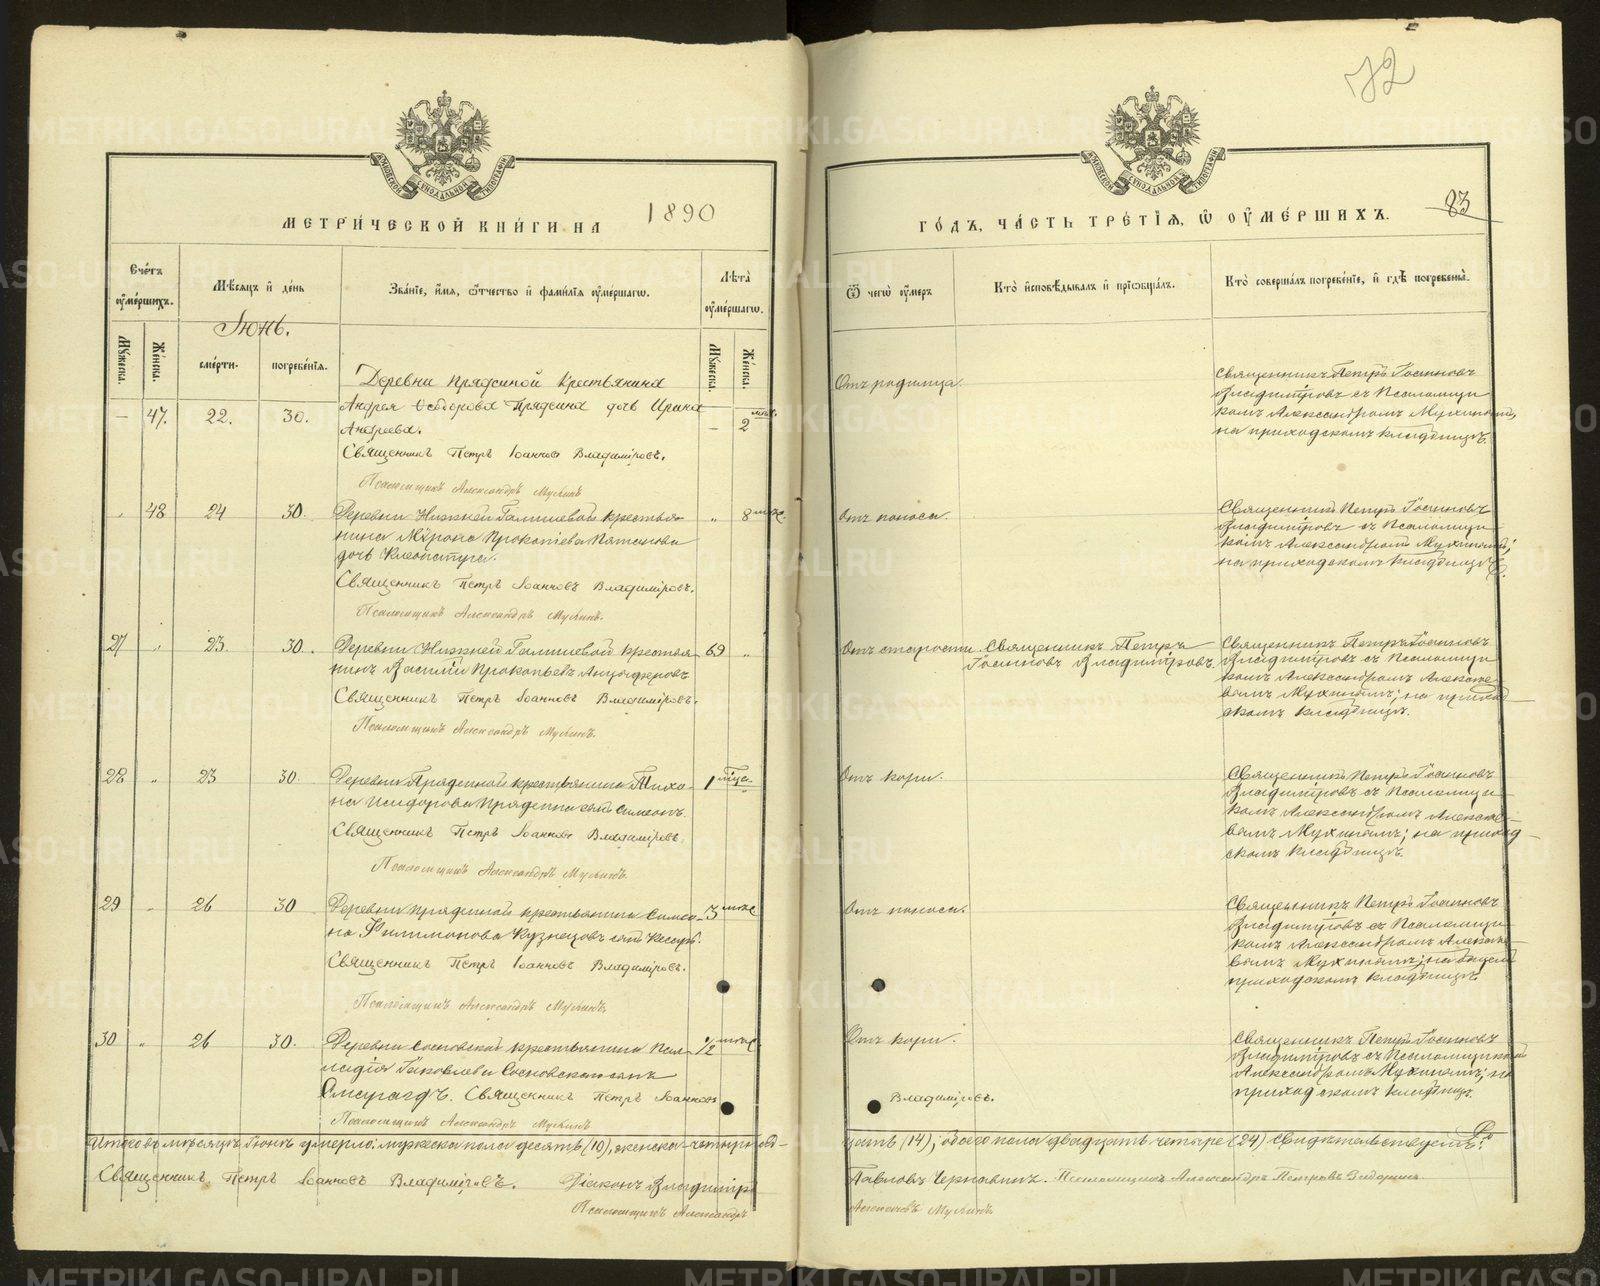 72
МОСКОВСКОЙ СУНОДАЛЬНОЙ ТИПОГРАФІИ
МОСКОВСКОЙ СУНОДАЛЬНОЙ ТИПОГРАФІИ
МЕТРИ́ЧЕСКОЙ КНИ́ГИ НА 1890
ГО́ДЪ, ЧА́СТЬ ТРЕ́ТІѦ, Ѿ ОУМЕ́РШИХЪ.
83
Счетъ оумершихъ.
Мѣсяцъ и день
Званіе, имя, отчество и фамилія оумершагѡ.
Лѣта оумершагѡ.
Ѿ чегѡ оумеръ
Кто исповѣдывалъ и пріобщалъ.
Кто совершалъ погребеніе, и гдѣ погребены.
Іюнь.
Мужеска. Женска. смерти. погребенія. Мужеска. Женска.
Деревни Прядеиной Крестьянина
— 47. 22. 30. Андрея Ѳедорова Прядеина дочь Ирина — 2 мѣс.
Андреева.
Священникъ Петръ Іоанновъ Владиміровъ.
Псаломщикъ Александръ Мухинъ
Отъ родимца.
Священникъ Петръ Іоанновъ
Владиміровъ съ Псаломщи
комъ Александромъ Мухинымъ,
на приходскомъ кладбищѣ.
„ 48 24 30. Деревни Нижней Галишевой крестья- „ 8 мѣс.
нина Мѵрона Прокопіева Пятанова
дочь Клеопатра.
Священникъ Петръ Іоанновъ Владиміровъ.
Псаломщикъ Александръ Мухинъ.
Отъ поноса.
Священникъ Петръ Іоанновъ
Владиміровъ съ Псаломщи
комъ Александромъ Мухинымъ;
на приходскомъ кладбищѣ.
27 „ 23. 30. Деревни Нижней Галишевой крестья- 69 „
нинъ Василій Прокопьевъ Анциферовъ
Священникъ Петръ Іоанновъ Владиміровъ.
Псаломщикъ Александръ Мухинъ.
Отъ старости. Священникъ Петръ
Іоанновъ Владиміровъ.
Священникъ Петръ Іоанновъ
Владиміровъ съ Псаломщи
комъ Александромъ Алексѣе-
вымъ Мухинымъ; на приход-
скомъ кладбищѣ.
28 „ 23 30. Деревни Прядеиной крестьянина Тихо- 1
на Исидорова Прядеина сынъ Симеонъ.
Священникъ Петръ Іоанновъ Владиміровъ.
Псаломщикъ Александръ Мухинъ.
Отъ кори.
Священникъ Петръ Іоанновъ
Владиміровъ съ Псаломщи-
комъ Александромъ Алексѣе-
вымъ Мухинымъ; на приход-
скомъ кладбищѣ.
29 „ 26 30 Деревни Прядеиной крестьянина Симео- 3 мѣс.
на Филимонова Кузнецовъ сынъ
Священникъ Петръ Іоанновъ Владиміровъ.
Псаломщикъ Александръ Мухинъ.
Отъ поноса.
Священникъ Петръ Іоанновъ
Владиміровъ съ Псаломщи-
комъ Александромъ Алексѣе-
вымъ Мухинымъ; на
приходскомъ кладбищѣ.
30 „ 26 30. Деревни Сосновской крестьянина Пал- 1/2 мѣс.
ладія Іаковлева Сосновскаго сынъ
Смарагдъ. Священникъ Петръ Іоанновъ
Владиміровъ.
Псаломщикъ Александръ Мухинъ
Отъ кори.
Священникъ Петръ Іоанновъ
Владиміровъ съ Псаломщикомъ
Александромъ Мухинымъ; на
приходскомъ кладбищѣ.
Итого въ мѣсяцѣ Іюнѣ умерло: мужеска пола десять (10), женска четырнад-
цать (14), обоего пола двадцать четыре (24). Свидѣтельствуемъ:
Священникъ Петръ Іоанновъ Владиміровъ. Діаконъ Владиміръ
Павловъ Чернавинъ. Псаломщикъ Александръ Петровъ
Псаломщикъ Александръ
Алексѣевъ Мухинъ
METRIKI.GASO-URAL.RU